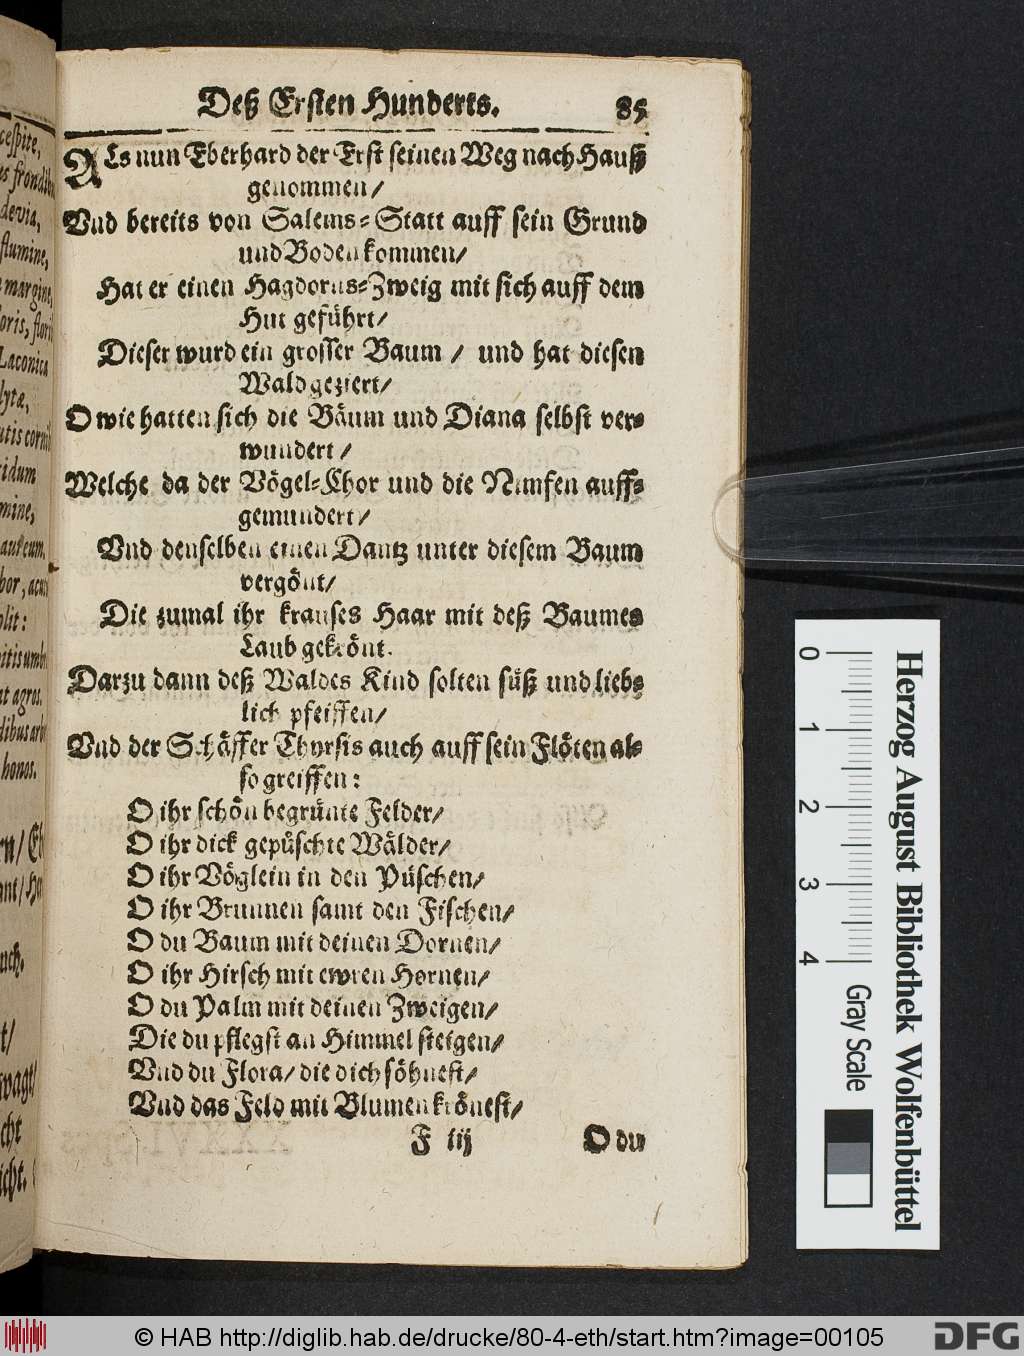 cespite,
devia,
flumine,
margine
Laconica
lytæ,
idum
mine,
aureum.
plit:
honos.
Deß Ersten Hunderts. 85
ALs nun Eberhard der Erst seinen Weg nach Hauß
genommen/
Vnd bereits von Salems-Statt auff sein Grund
und Boden kommen/
Hat er einen Hagdorns-Zweig mit sich auff dem
Hut geführt/
Dieser wurd ein grosser Baum / und hat diesen
Wald geziert/
O wie hatten sich die Bäum und Diana selbst ver-
wundert /
Welche da der Vögel-Chor und die Nimfen auff-
gemundert/
Vnd denselben einen Dantz unter diesem Baum
vergönt/
Die zumal ihr krauses Haar mit deß Baumes
Laub gekrönt.
Darzu dann deß Waldes Kind solten süß und lieb-
lich pfeiffen/
Vnd der Schäffer Thyrsis auch auff sein Flöten al-
so greiffen:
O ihr schön begrünte Felder/
O ihr dick gepüschte Wälder/
O ihr Vöglein in den Püschen/
O ihr Brunnen samt den Fischen/
O du Baum mit deinen Dornen/
O ihr Hirsch mit ewren Hornen/
O du Palm mit deinen Zweigen/
Die du pflegst an Himmel steigen/
Vnd du Flora/ die dich söhnest/
Vnd das Feld mit Blumen krönest/
F iij O du
0 1 2 3 4
Gray Scale
Herzog August Bibliothek Wolfenbüttel
© HAB http://diglib.hab.de/drucke/80-4-eth/start.htm?image=00105
DFG